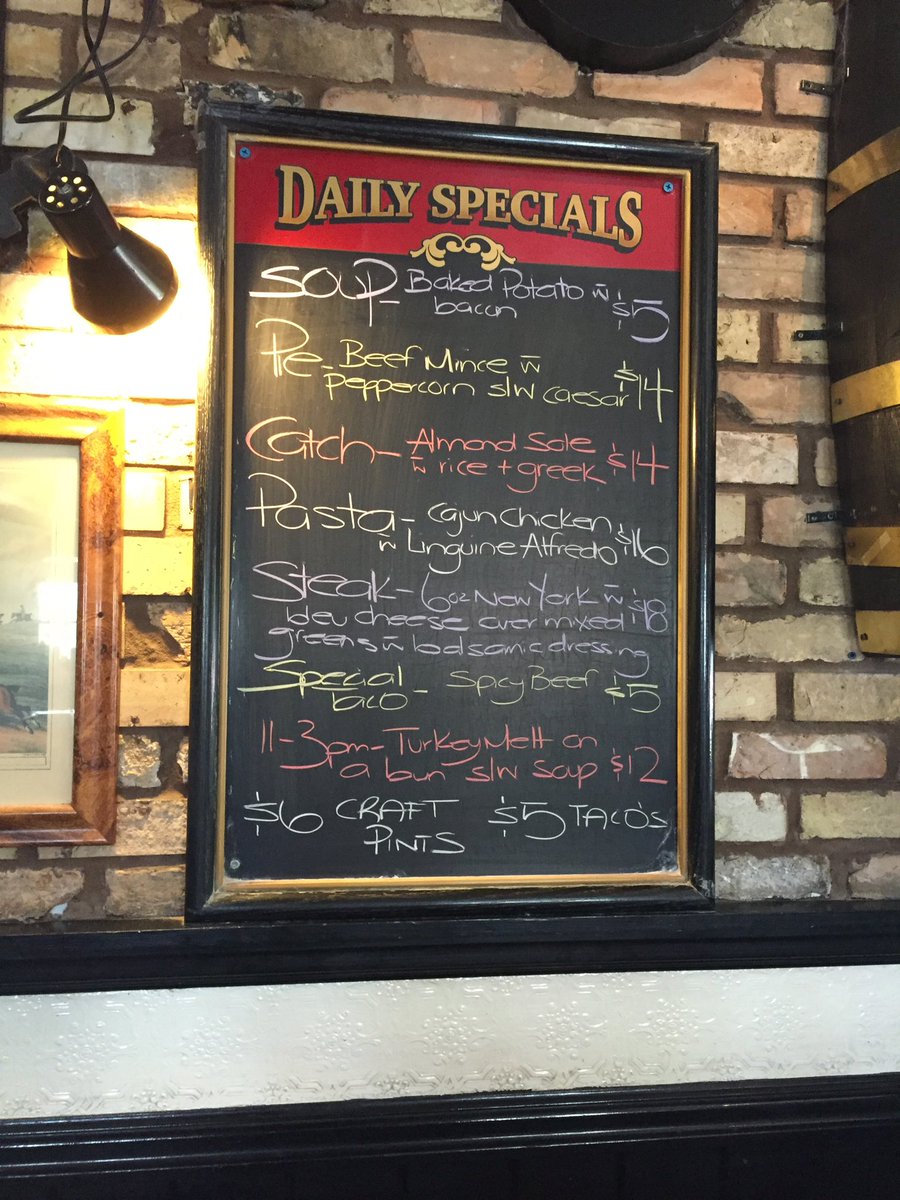 DAILY SPECIALS
SOUP- Baked Potato w̄ $5
bacon
Pie- Beef Mince w̄ $14
peppercorn s/w caesar
Catch- Almond Sole $14
w̄ rice + greek
Pasta- Cajun Chicken $16
w̄ Linguine Alfredo
Steak- 6oz New York w̄ $18
bleu cheese over mixed
greens w̄ balsamic dressing
Special Taco - Spicy Beef $5
11-3pm- Turkey Melt on
a bun s/w soup $12
$6 CRAFT PINTS $5 TACO'S